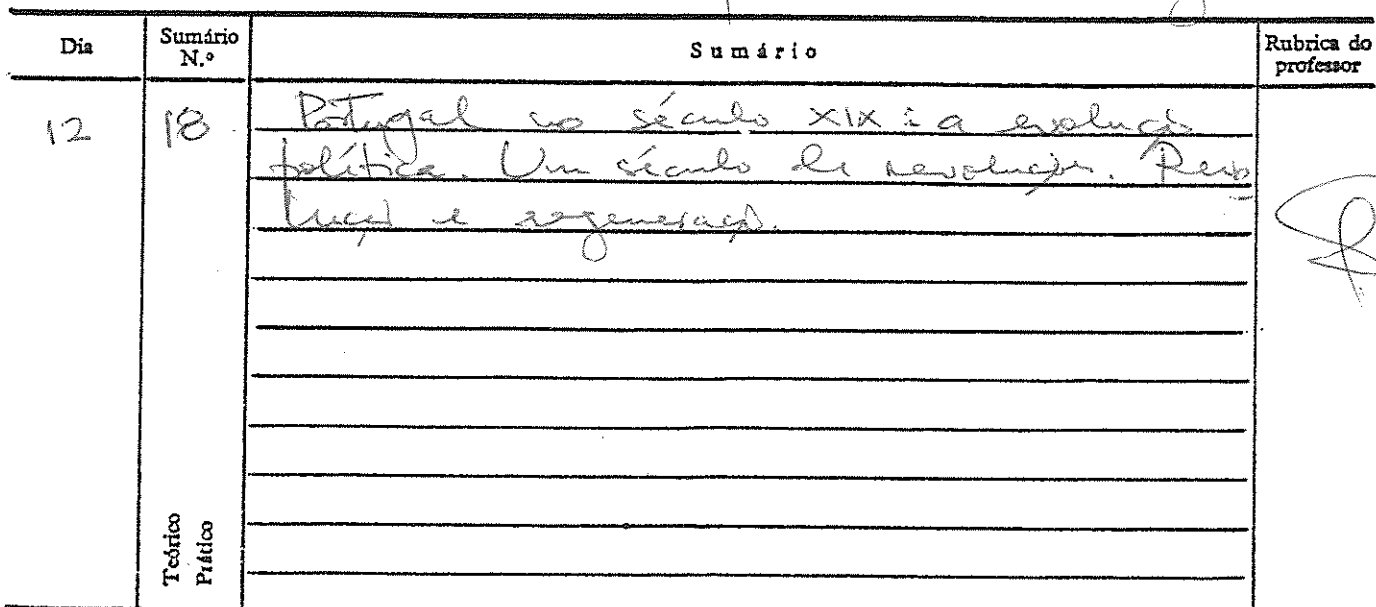 Dia Sumário N.º Sumário Rubrica do professor
12 18 Portugal no século XIX: a evolução
política. Um século de revoluções. Revo
lução e regeneração.
Teórico
Prático